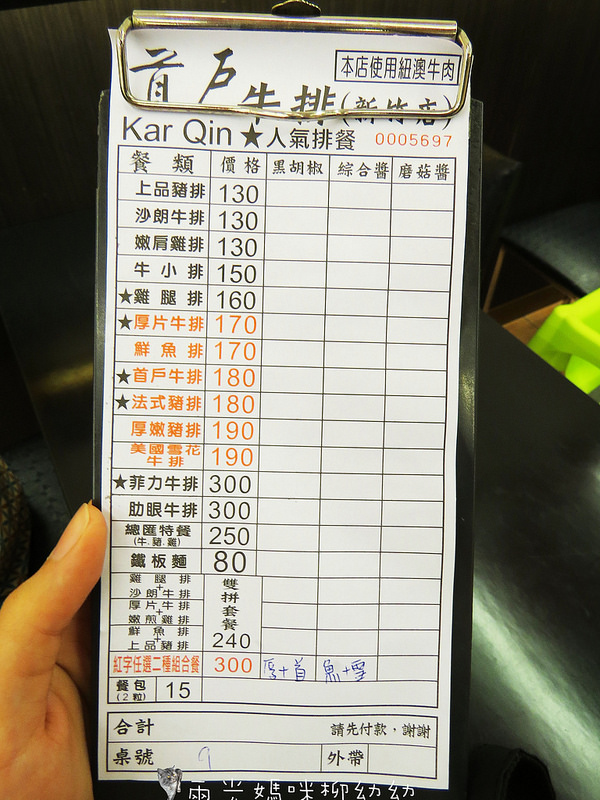 首戶牛排(新竹店)
本店使用紐澳牛肉
Kar Qin ★人氣排餐 0005697
餐類 價格 黑胡椒 綜合醬 磨菇醬
上品豬排 130
沙朗牛排 130
嫩肩雞排 130
牛小排 150
★雞腿排 160
★厚片牛排 170
鮮魚排 170
★首戶牛排 180
★法式豬排 180
厚嫩豬排 190
美國雪花牛排 190
★菲力牛排 300
肋眼牛排 300
總匯特餐 250
(牛.豬.雞)
鐵板麵 80
雞腿排
+
沙朗牛排
厚片牛排
+
嫩煎雞排
鮮魚排
+
上品豬排
雙拼套餐 240
紅字任選二種組合餐 300 厚+首 魚+雪
餐包 15
(2粒)
合計 請先付款，謝謝
桌號 9 外帶
雨兮媽咪柳幼幼